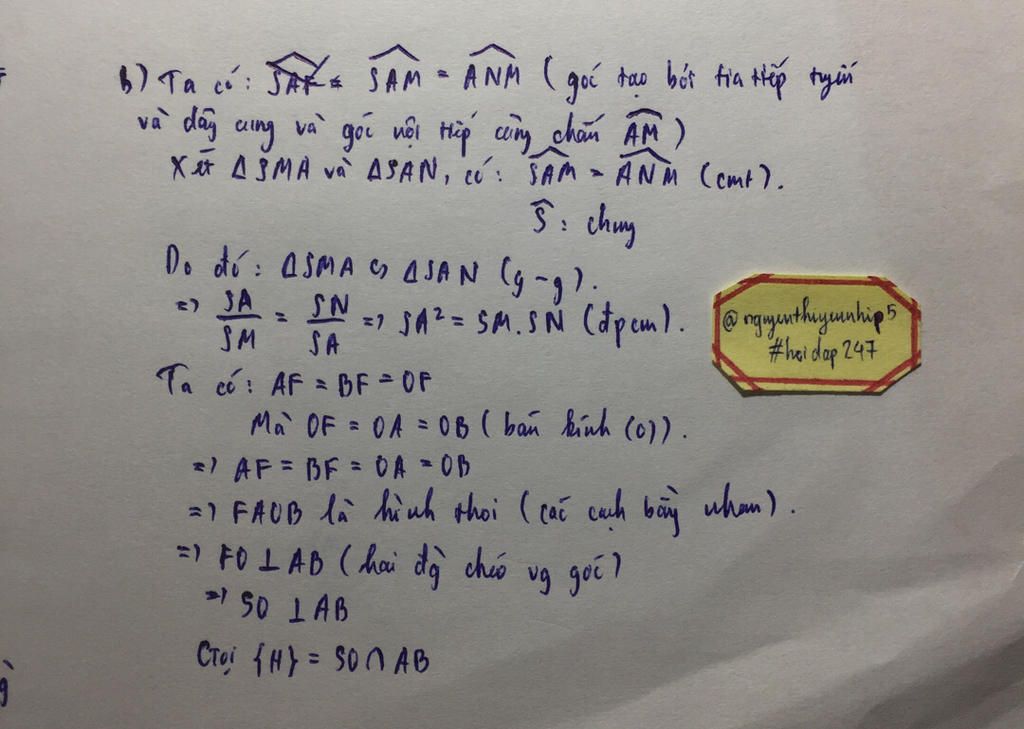 b) Ta có: SAM = ANM (góc tạo bởi tia tiếp tuyến
và dây cung và góc nội tiếp cùng chắn AM)
Xét ΔSMA và ΔSAN, có: SAM = ANM (cmt).
Ŝ: chung
Do đó: ΔSMA ∽ ΔSAN (g-g).
=> SA/SM = SN/SA => SA² = SM.SN (đpcm).
@nguyenthiyennhip5
#hoidap247
Ta có: AF = BF = OF
Mà OF = OA = OB (bán kính (O)).
=> AF = BF = OA = OB
=> FAOB là hình thoi (các cạnh bằng nhau).
=> FO ⊥ AB (hai đg chéo vg góc)
=> SO ⊥ AB
Gọi {H} = SO ∩ AB